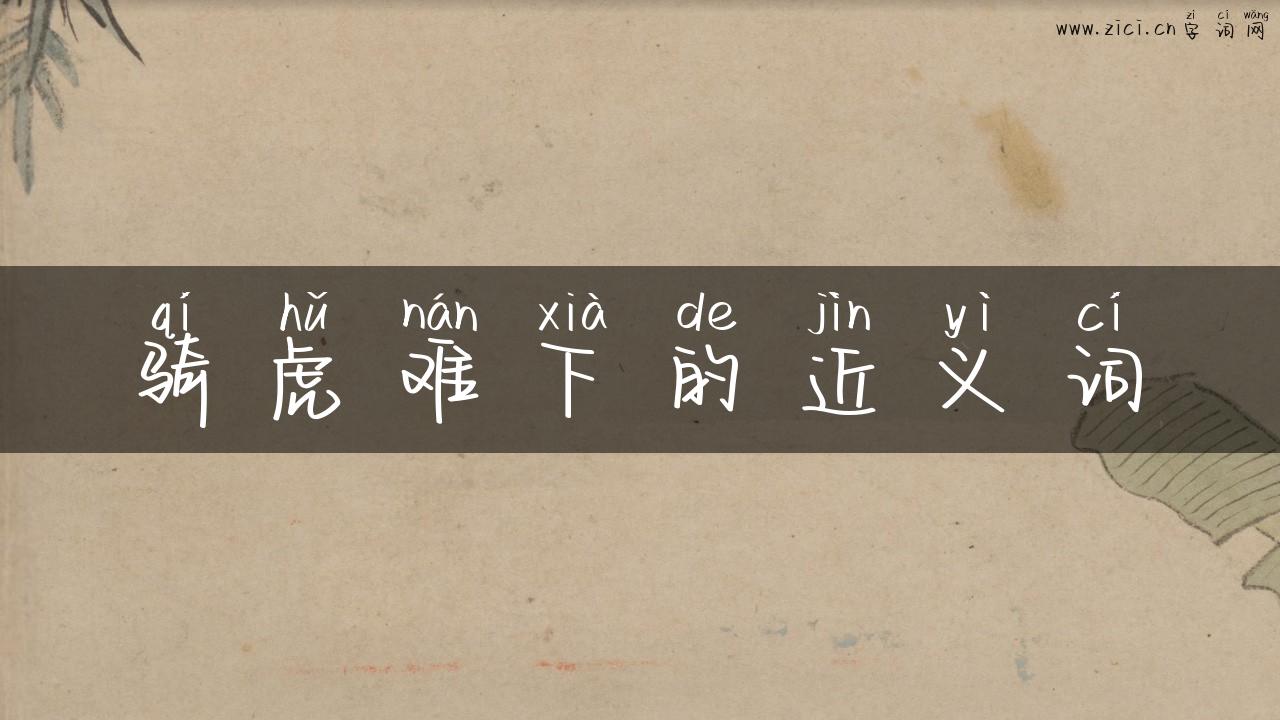 zì cí wǎng
www.zici.cn 字词网
qí hǔ nán xià de jìn yì cí
骑虎难下的近义词